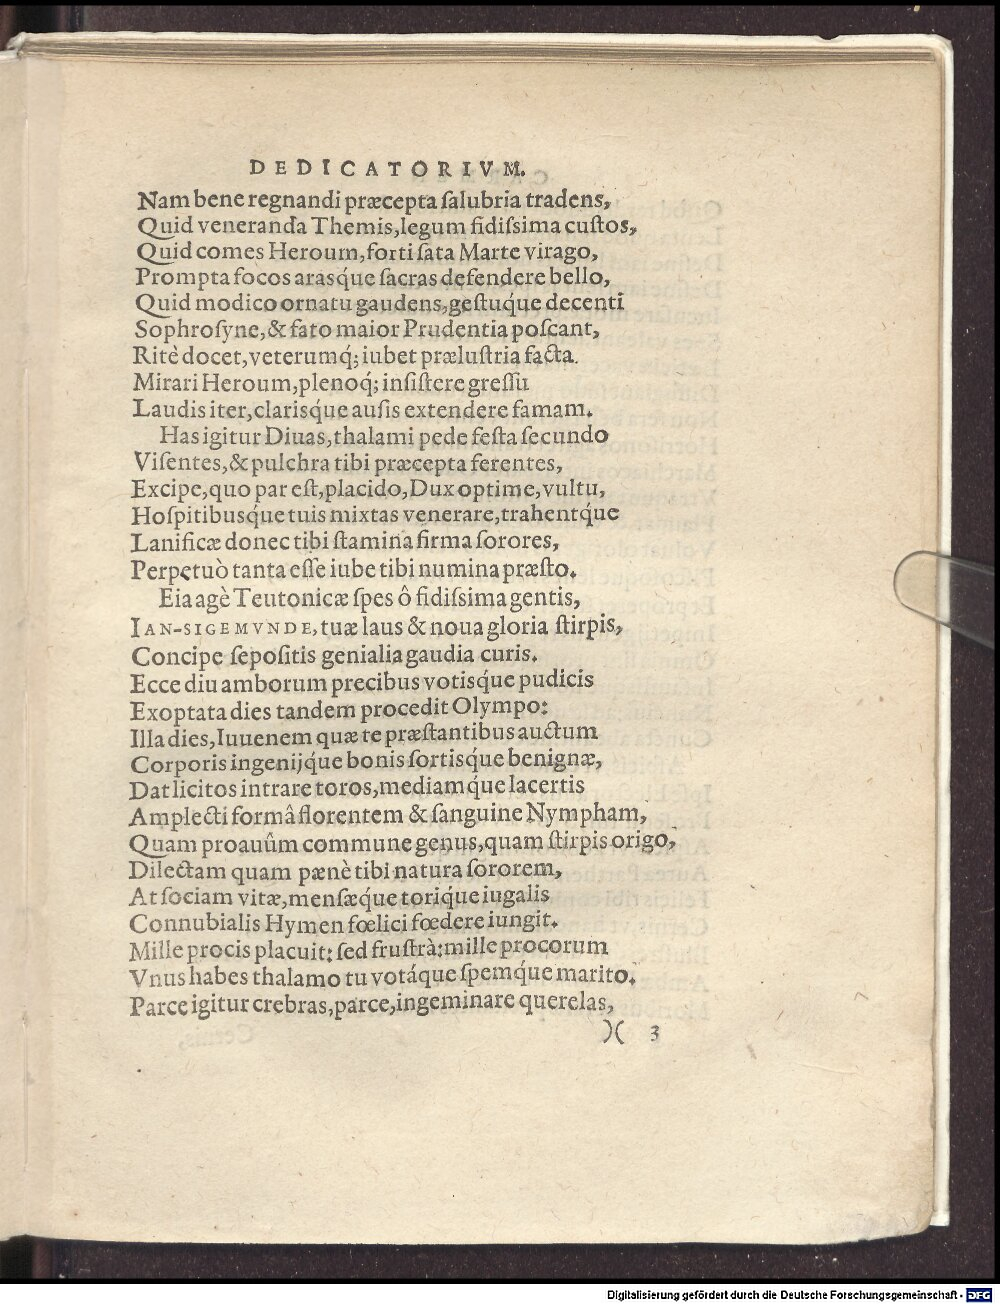 DEDICATORIVM.
Nam bene regnandi præcepta ſalubria tradens,
Quid veneranda Themis, legum fidiſsima cuſtos,
Quid comes Heroum, forti ſata Marte virago,
Prompta focos arasq́ue ſacras defendere bello,
Quid modico ornatu gaudens, geſtuq́ue decenti
Sophroſyne, & fato maior Prudentia poſcant,
Ritè docet, veterumq́; iubet præluſtria facta.
Mirari Heroum, plenoq́; inſiſtere greſſu
Laudis iter, clarisq́ue auſis extendere famam.
Has igitur Diuas, thalami pede feſta ſecundo
Viſentes, & pulchra tibi præcepta ferentes,
Excipe, quo par eſt, placido, Dux optime, vultu,
Hoſpitibusq́ue tuis mixtas venerare, trahentq́ue
Lanificæ donec tibi ſtamina firma ſorores,
Perpetuò tanta eſſe iube tibi numina præſto.
Eia agè Teutonicæ ſpes ô fidiſsima gentis,
IAN-SIGEMVNDE, tuæ laus & noua gloria ſtirpis,
Concipe ſepoſitis genialia gaudia curis.
Ecce diu amborum precibus votisq́ue pudicis
Exoptata dies tandem procedit Olympo:
Illa dies, Iuuenem quæ te præſtantibus auctum
Corporis ingenijq́ue bonis ſortisq́ue benignæ,
Dat licitos intrare toros, mediamq́ue lacertis
Amplecti formâ florentem & ſanguine Nympham,
Quam proauûm commune genus, quam ſtirpis origo,
Dilectam quam pænè tibi natura ſororem,
At ſociam vitæ, menſæq́ue toriq́ue iugalis
Connubialis Hymen fœlici fœdere iungit.
Mille procis placuit: ſed fruſtrà: mille procorum
Vnus habes thalamo tu votáque ſpemq́ue marito.
Parce igitur crebras, parce, ingeminare querelas,
)( 3
Digitalisierung gefördert durch die Deutsche Forschungsgemeinschaft - DFG